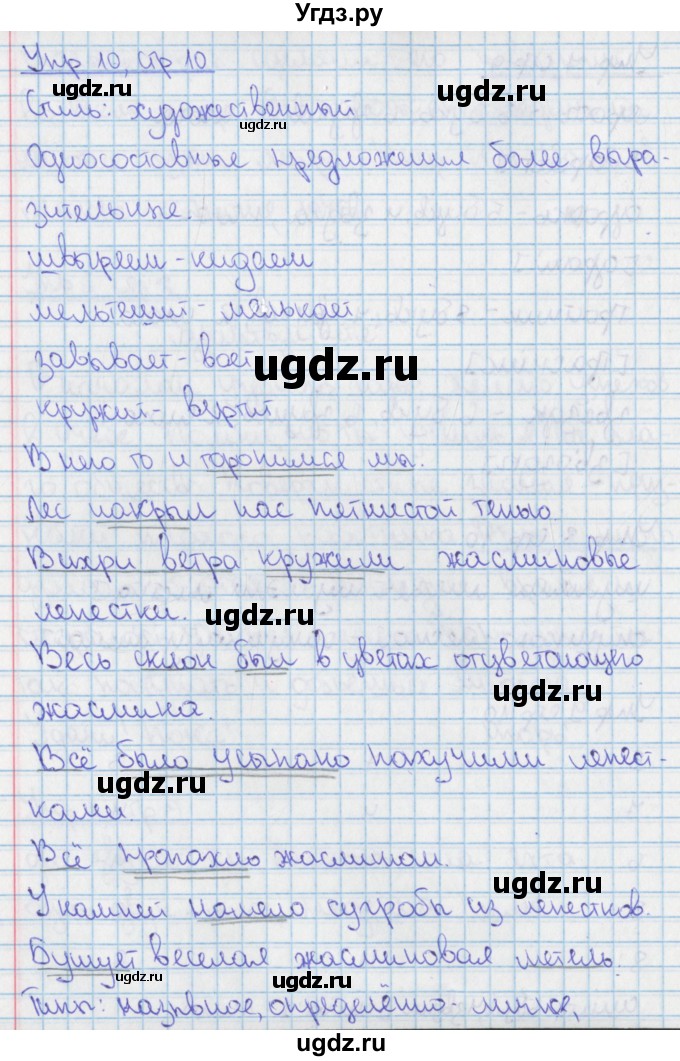 Угдз.ру
Упр 10, стр 10
ugdz.ru ugdz.ru
Стиль: художественный
ugdz.ru
Односоставные предложения более выра-
ugdz.ru ugdz.ru
зительные.
швыряем - кидаем
ugdz.ru
мельтешит - мелькает
завывает - воет
ugdz.ru
кружит - вертит
В него то и торопимся мы.
ugdz.ru ugdz.ru
Лес накрыл нас пятнистой тенью
Вихри ветра кружили жасминовые
лепестки.
ugdz.ru
Весь склон был в цветах отцветающего
ugdz.ru
жасмина.
Всё было усыпано пахучими лепест-
ugdz.ru
ками.
Всё пропахло жасмином.
ugdz.ru
У камней намело сугробы из лепестков.
Бушует веселая жасминовая метель.
ugdz.ru ugdz.ru
ugdz.ru
Типы: назывное, определённо-личное,
ugdz.ru